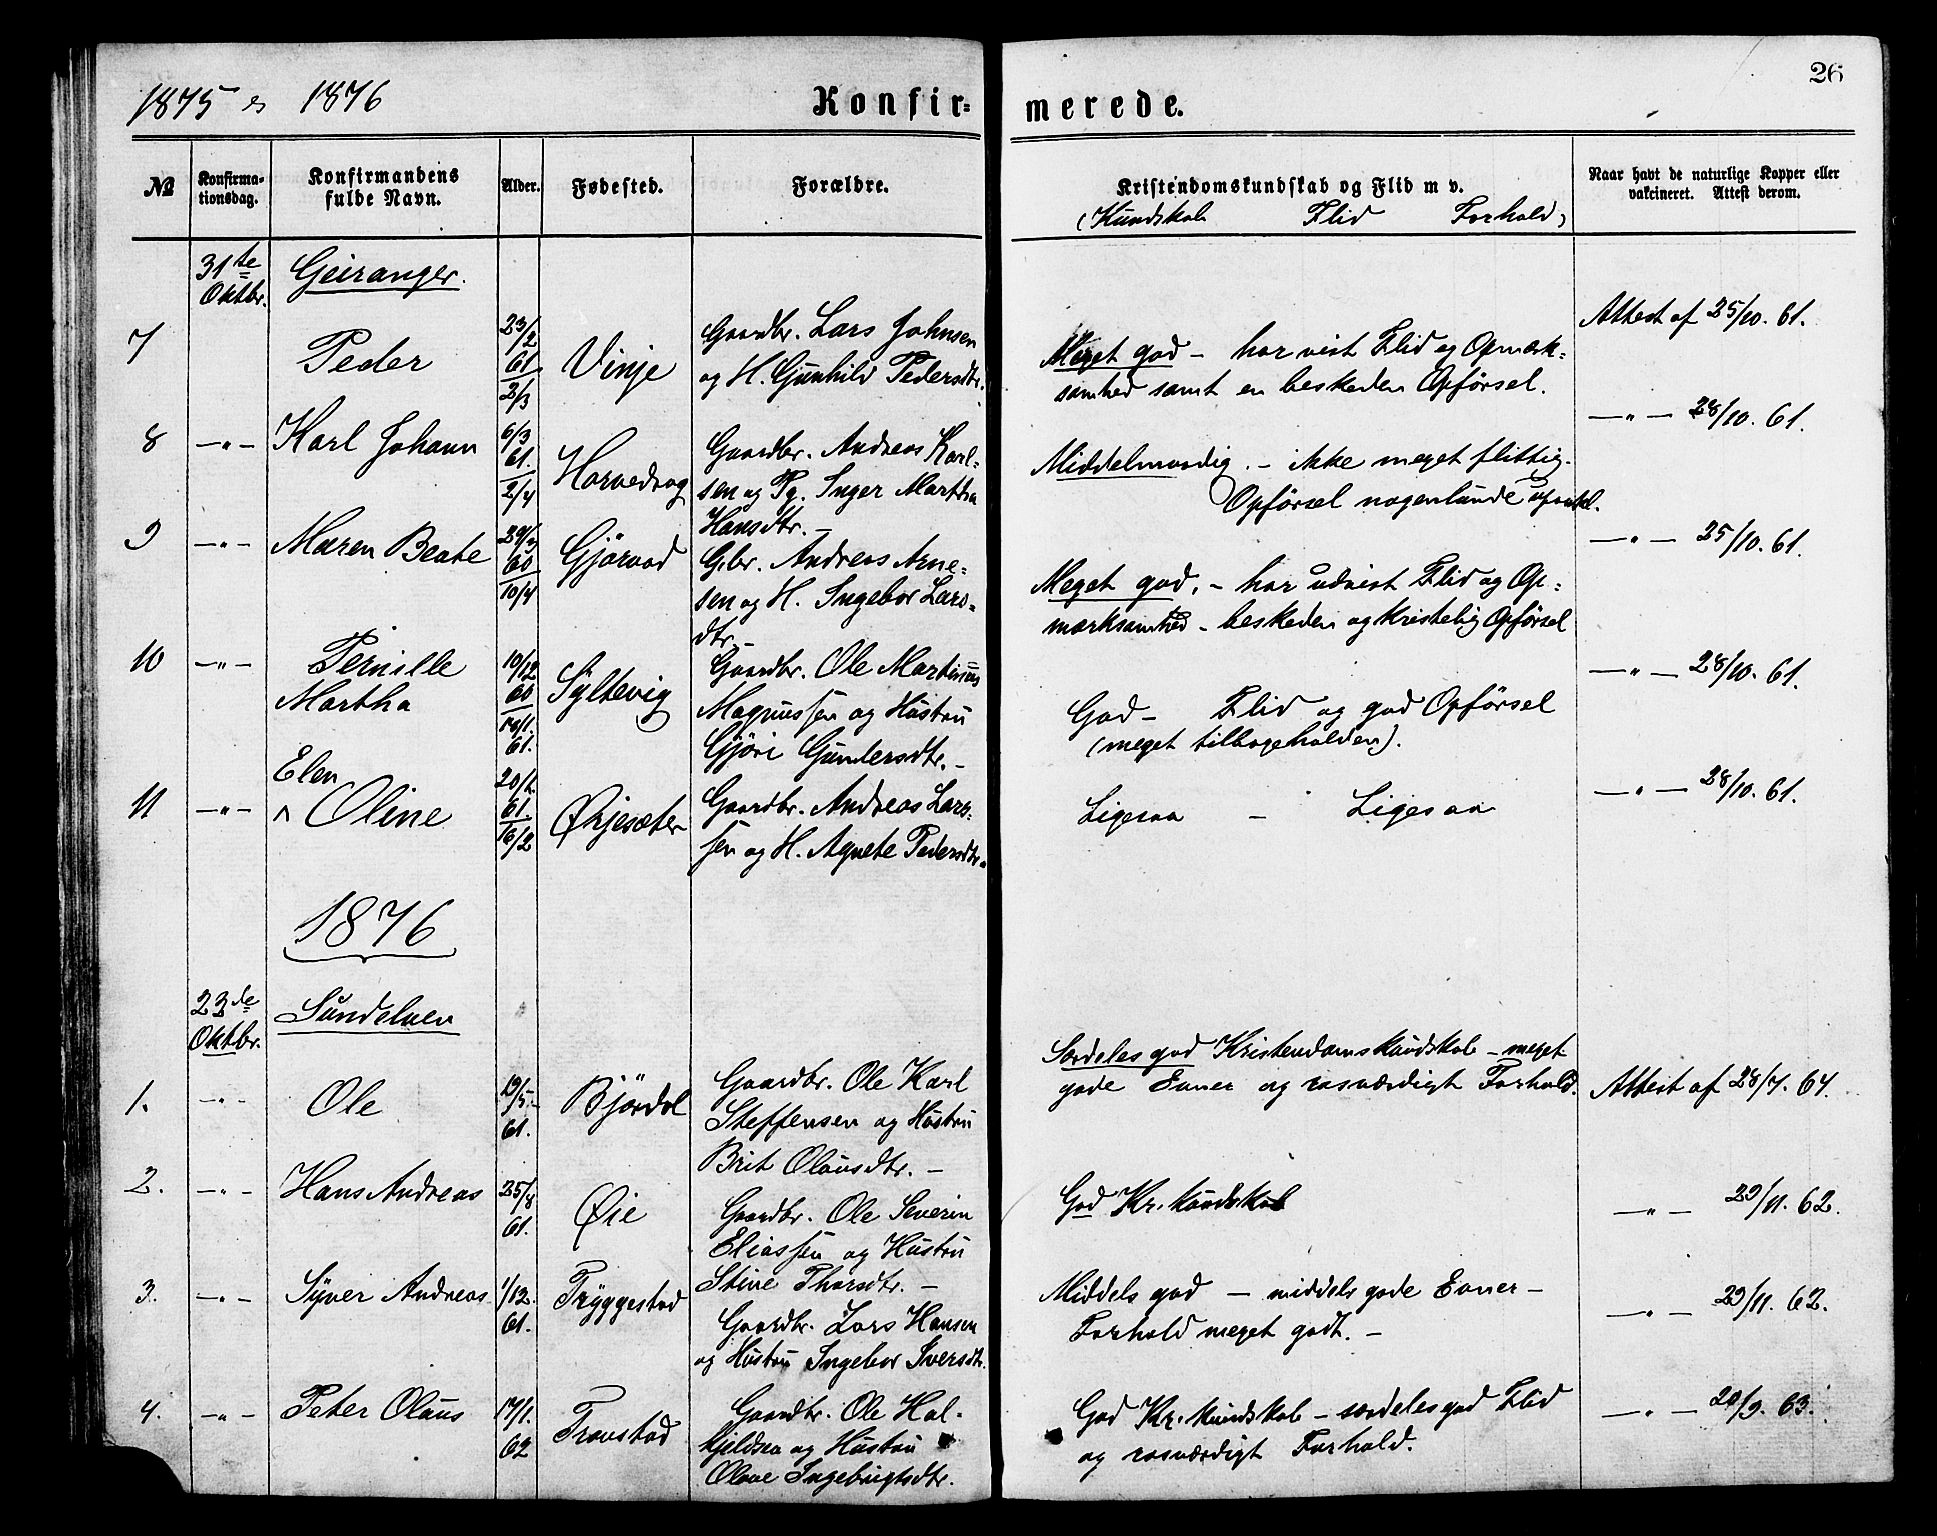 1875 og 1876
Konfir=
merede.
26
№
Konfirma-
tionsdag.
Konfirmandens
fulde Navn.
Alder.
Fødested.
Forældre.
Kristendomskundskab og Flid m v.
(Kundskab Flid Forhold)
Naar havt de naturlige Kopper eller
vakcineret. Attest derom.
31te
Oktbr.
Geiranger.
7
Peder
23/2
61
2/3
Vinje
Gaardbr. Lars Johnsen
og H. Gunhild Pedersdtr.
Meget god - har vist Flid og Opmærk=
somhed samt en beskeden Opförsel.
Attest af 25/10. 61.
8 -"- Karl Johann
6/3
61.
2/4
Horvedrag
Gaardbr. Andreas Karl=
sen og Pg. Inger Martha
Hansdtr. -
Middelmaadig. - ikke meget flittig.
Opförsel nogenlunde
-"- 28/10. 61.
9 -"- Maren Beate
60
10/4
Gjörvad
Gbr. Andreas Arne=
sen og H. Ingebor Lars=
dtr. -
Meget god. - har udvist Flid og Op=
mærksomhed - beskeden og kristelig Opförsel
-"- 25/10. 61.
10 -"- Pernille
Martha
10/12
60
14/1.
61.
Syltevig
Gaardbr. Ole Martinus
Magnussen og Hustru
Gjöri Gundersdtr. -
God - Flid og god Opförsel
(meget tilbageholden).
-"- 28/10. 61.
11 -"- Elen
Oline
20/1.
61.
16/2
Ørjesæter
Gaardbr. Andreas Lars=
sen og H. Agnete Pedersdtr.
Ligesaa - Ligesaa
-"- 28/10. 61.
1876
23de
Oktbr.
Sundelven
1. -"- Ole
19/5.
61.
Bjørdal
Gaardbr. Ole Karl
Steffensen og Hustru
Brit Olausdtr. -
Særdeles god Kristendomskundskab - meget
gode Evner og rosværdigt Forhold.
Attest af 28/7. 64.
2. -"- Hans Andreas
25/8
61.
Øie
Gaardbr. Ole Severin
Eliassen og Hustru
Stine Thorsdtr. -
God Kr. kundskab
-"- 29/11. 62.
3. -"- Syver Andreas
1/12.
61.
Tryggestad
Gaardbr. Lars Hansen
og Hustru Ingebor Iversdtr.
Middels god - middels gode Evner -
Forhold meget godt. -
-"- 29/11. 62.
4. -"- Peter Olaus
17/1.
62
Fravstad
Gaardbr. Ole Hal-
kjeldsen og Hustru
Olave Ingebrigtsdtr.
God Kr. kundskab - særdeles god Flid
og rosværdigt Forhold.
-"- 20/9. 63.